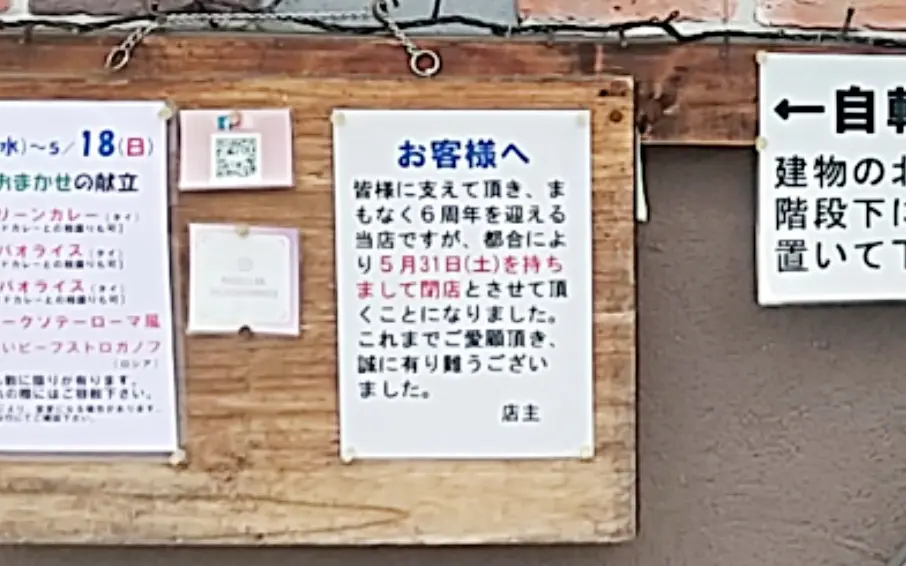 水)～5/18(日)
おまかせの献立
リーンカレー(タイ)
パオライス(タイ)
ドカレーとの相盛りも可]
パオライス(タイ)
ドカレーとの相盛りも可]
ークソテーローマ風
いビーフストロガノフ
(ロシア)
お客様へ
皆様に支えて頂き、ま
もなく6周年を迎える
当店ですが、都合によ
り5月31日(土)を持ち
まして閉店とさせて頂
くことになりました。
これまでご愛顧頂き、
誠に有り難うござい
ました。
店主
←自転
建物の北
階段下に
置いて下